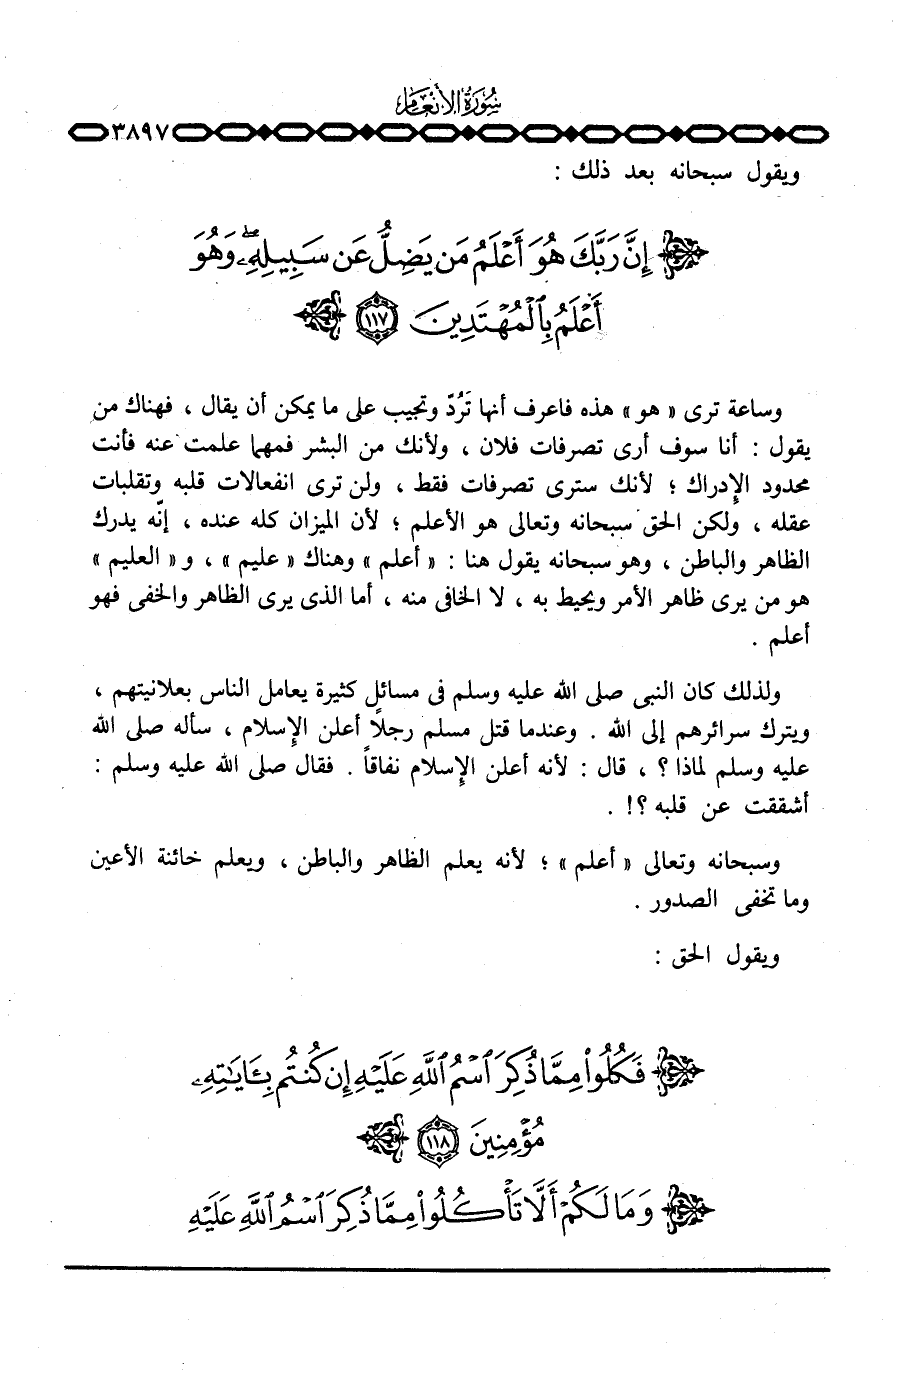 سُورَةُ الأَنْعَامِ
٣٨٩٧
ويقول سبحانه بعد ذلك :
إِنَّ رَبَّكَ هُوَ أَعْلَمُ مَن يَضِلُّ عَن سَبِيلِهِۦ ۖ وَهُوَ
أَعْلَمُ بِٱلْمُهْتَدِينَ ١١٧
وساعة ترى « هو » هذه فاعرف أنها تَرُدّ وتجيب على ما يمكن أن يقال ، فهناك من
يقول : أنا سوف أرى تصرفات فلان ، ولأنك من البشر فمهما علمت عنه فأنت
محدود الإدراك ؛ لأنك سترى تصرفات فقط ، ولن ترى انفعالات قلبه وتقلبات
عقله ، ولكن الحق سبحانه وتعالى هو الأعلم ؛ لأن الميزان كله عنده ، إنّه يدرك
الظاهر والباطن ، وهو سبحانه يقول هنا : « أعلم » وهناك « عليم » ، و « العليم »
هو من يرى ظاهر الأمر ويحيط به ، لا الخافى منه ، أما الذى يرى الظاهر والخفى فهو
أعلم .
ولذلك كان النبى صلى الله عليه وسلم فى مسائل كثيرة يعامل الناس بعلانيتهم ،
ويترك سرائرهم إلى الله . وعندما قتل مسلم رجلاً أعلن الإسلام ، سأله صلى الله
عليه وسلم لماذا ؟ ، قال : لأنه أعلن الإسلام نفاقاً . فقال صلى الله عليه وسلم :
أشققت عن قلبه ؟! .
وسبحانه وتعالى « أعلم » ؛ لأنه يعلم الظاهر والباطن ، ويعلم خائنة الأعين
وما تخفى الصدور .
ويقول الحق :
فَكُلُوا۟ مِمَّا ذُكِرَ ٱسْمُ ٱللَّهِ عَلَيْهِ إِن كُنتُم بِـَٔايَـٰتِهِۦ
مُؤْمِنِينَ ١١٨
وَمَا لَكُمْ أَلَّا تَأْكُلُوا۟ مِمَّا ذُكِرَ ٱسْمُ ٱللَّهِ عَلَيْهِ